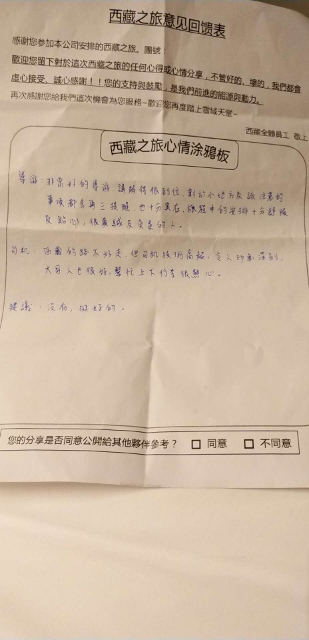 西藏之旅意见回馈表
感謝您參加本公司安排的西藏之旅，團號：
歡迎您留下對於這次西藏之旅的任何心得或心情分享，不管好的、壞的，我們都會
虛心接受、誠心感謝！！您的支持與鼓勵，是我們前進的能源與動力。
再次感謝您給我們這次機會為您服務~歡迎您再度踏上雪域天堂~
西藏全體員工 敬上
西藏之旅心情涂鴉板
導游：非常好的導游 講解得很到位，對於小地方或該注意的
事項都會再三提醒 也十分實在，旅程中的安排十分舒服
很 熱 友善的人。
司机：西藏的路不好走，但司机技術高超，令人印象深刻，
大哥人也很好，幫忙上下行李很熱心。
建議：沒有，挺好的。
您的分享是否同意公開給其他夥伴參考？ □ 同意 □ 不同意